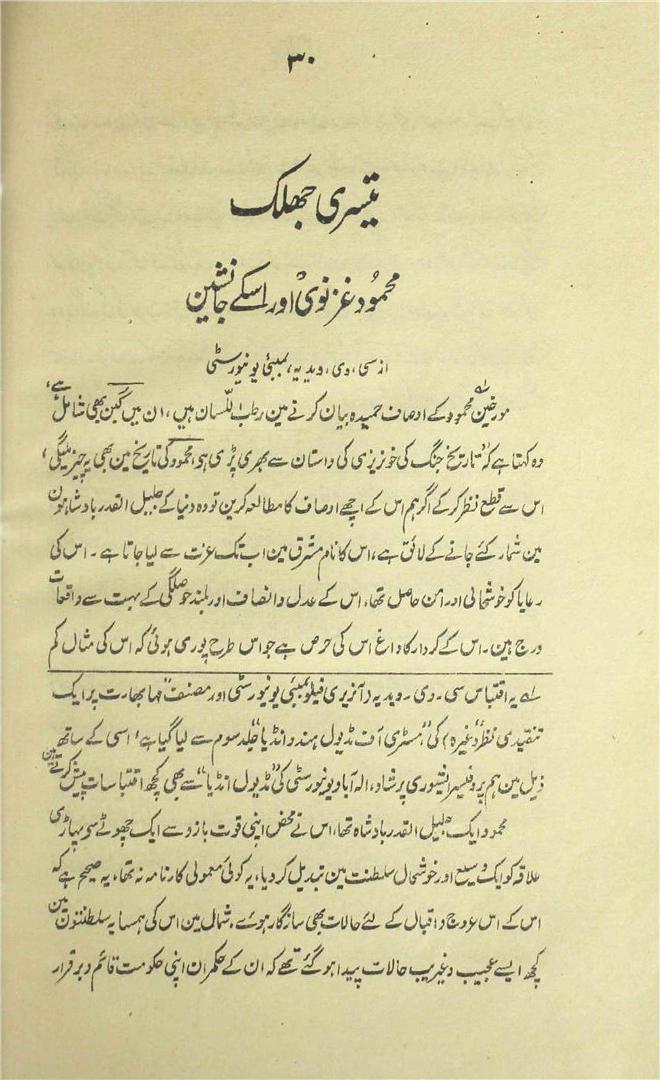 ۳۰
تیسری جھلک
محمود غزنوی اور اسکے جانشین
از سی، وی، ویدیہ، بمبئی یونیورسٹی
مورخین محمود کے اوصاف حمیدہ بیان کرنے مین رطب اللسان ہیں، ان میں گبن بھی شامل ہے،
وہ کہتا ہے کہ "تاریخ جنگ کی خونریزی کی داستان سے بھری پڑی ہو، محمود کی تاریخ مین بھی یہ چیز ملیگی،
اس سے قطع نظر کر کے اگر ہم اس کے اچھے اوصاف کا مطالعہ کرین تو وہ دنیا کے جلیل القدر بادشاہون
مین شمار کئے جانے کے لائق ہے، اس کا نام مشرق مین اب تک عزت سے لیا جاتا ہے۔ اس کی
رعایا کو خوشحالی اور امن حاصل تھا، اس کے عدل و انصاف اور بلند حوصلگی کے بہت سے واقعات
درج ہین۔ اس کے کردار کا داغ اس کی حرص ہے جو اس طرح پوری ہوئی کہ اس کی مثال کم
لہ یہ اقتباس سی۔ وی۔ ویدیہ (آنریری فیلو بمبئی یونیورسٹی اور مصنف "مہابھارت پر ایک
تنقیدی نظر" وغیرہ) کی "ہسٹری آف مڈیول ہندو انڈیا" جلد سوم سے لیا گیا ہے، اسی کے ساتھ
ذیل مین ہم پروفیسر ایشوری پرشاد، الہ آباد یونیورسٹی کی "مڈیول انڈیا" سے بھی کچھ اقتباسات پیش کرتے ہین
محمود ایک جلیل القدر بادشاہ تھا، اس نے محض اپنی قوت بازو سے ایک چھوٹے سے پہاڑی
علاقہ کو ایک وسیع اور خوشحال سلطنت مین تبدیل کر دیا، یہ کوئی معمولی کارنامہ نہ تھا، یہ صحیح ہے کہ
اس کے اس عروج و اقبال کے لئے حالات بھی سازگار ہوئے، شمال مین اس کی ہمسایہ سلطنتون مین
کچھ ایسے عجیب و غریب حالات پیدا ہو گئے تھے کہ ان کے حکمران اپنی حکومت قائم و برقرار